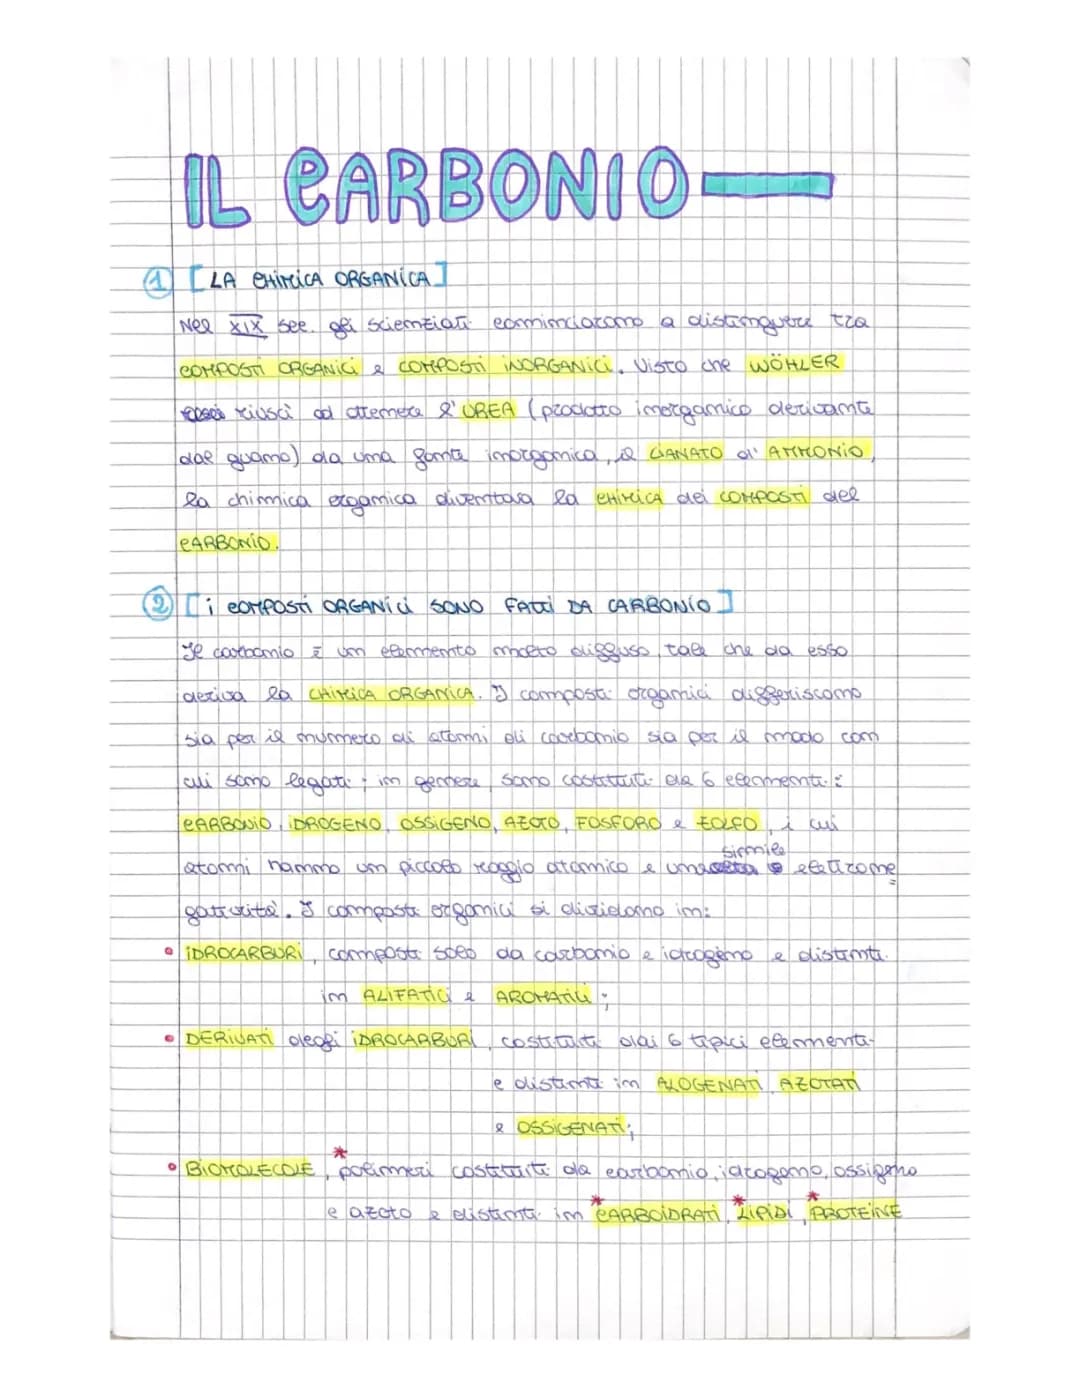 IL CARBONIO
1 [LA CHIMICA ORGANICA]
Nel XIX sec. gli scienziati comninciarono a distinguere tra
COMPOSTI ORGANICI e COMPOSTI INORGANICI. Visto che WÖHLER
riuscì ad ottenere l'UREA (prodotto inorganico derivante
dal guano) da una fonte inorganica, il CIANATO di AMMONIO,
la chimica organica diventava la CHIMICA dei COMPOSTI del
CARBONIO.
2 [i COMPOSTI ORGANICI SONO FATTI DA CARBONIO]
Il carbonio è un elemento molto diffuso, tale che da esso
deriva la CHIMICA ORGANICA. I composti organici differiscono
sia per il numero di atomi di carbonio sia per il modo con
cui sono legati; in genere sono costituiti da 6 elementi:
CARBONIO, IDROGENO, OSSIGENO, AZOTO, FOSFORO e ZOLFO, i cui
simile
atomi hanno un piccolo raggio atomico e una elettrone=
gatività. I composti organici si dividono in:
• IDROCARBURI, composti solo da carbonio e idrogeno e distinti
in ALIFATICI e AROMATICI;
• DERIVATI degli IDROCARBURI, costituiti dai 6 tipici elementi
e distinti in ALOGENATI, AZOTATI
e OSSIGENATI;
• BIOMOLECOLE, *polimeri costituiti da carbonio, idrogeno, ossigeno
e azoto e distinti in *CARBOIDRATI, *LIPIDI, *PROTEINE